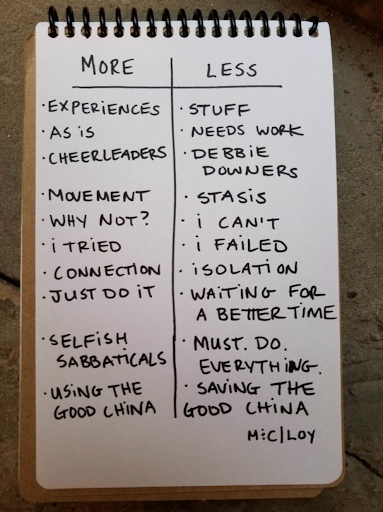 MORE LESS
· EXPERIENCES · STUFF
· AS iS · NEEDS WORK
· CHEERLEADERS · DEBBiE
DOWNERS
· MOVEMENT · STASiS
· WHY NOT? · i CAN'T
· i TRiED · i FAiLED
· CONNECTiON · iSOLATiON
· JUST DO iT · WAiTiNG FOR
A BETTER TiME
· SELFiSH · MUST. DO.
SABBATiCALS EVERYTHiNG.
· USiNG THE · SAViNG THE
GOOD CHiNA GOOD CHiNA